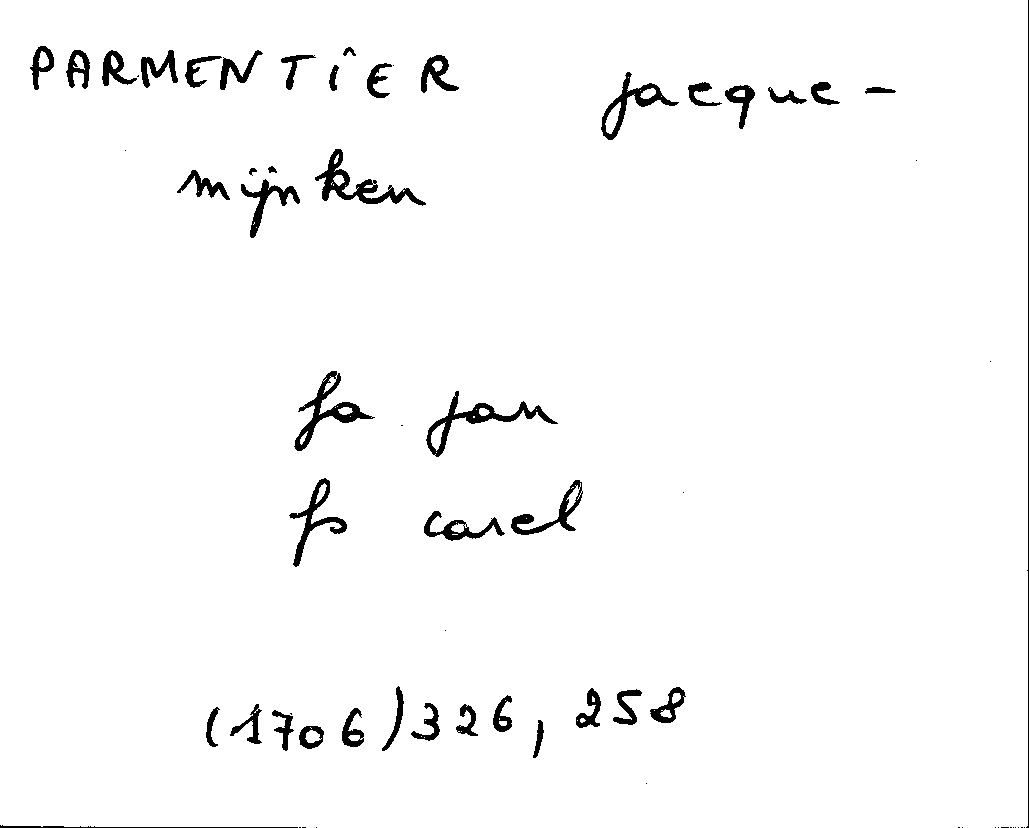 PARMENTIER jacque-
mijnken
fa jan
fs carel
(1706) 326, 258